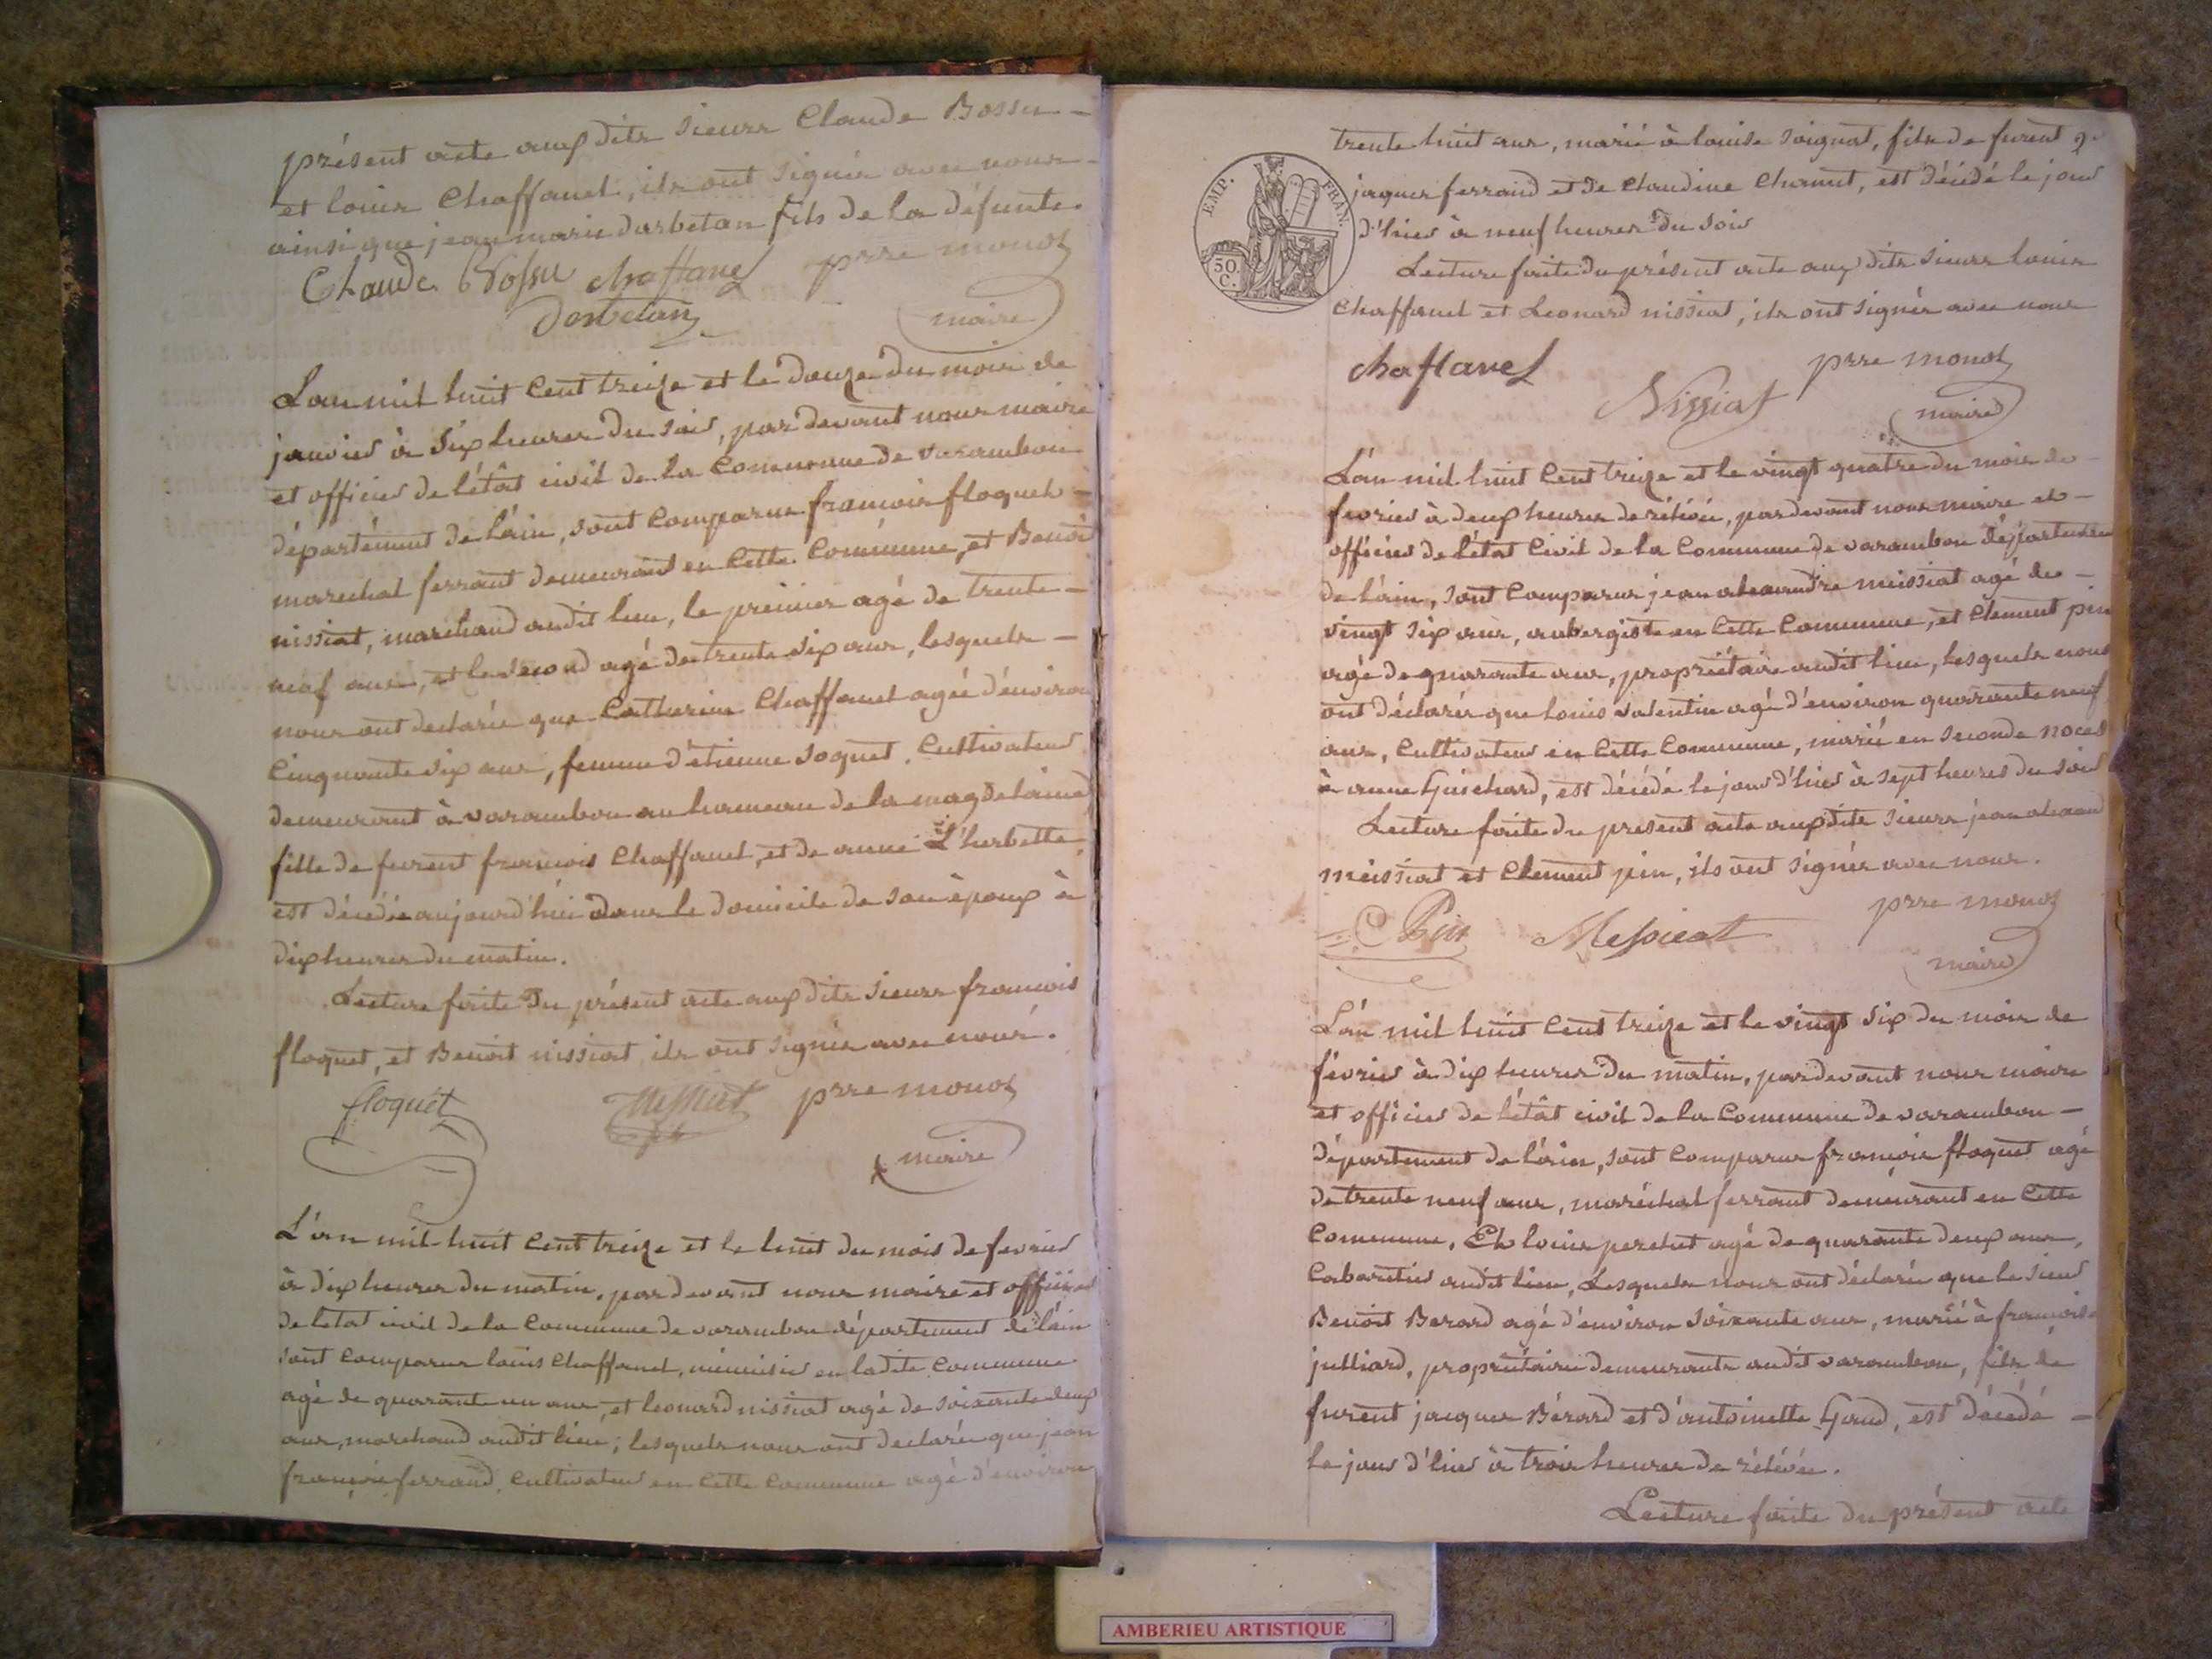 présent acte aux dits sieurs Claude Bossu -
et louis Chaffanel, ils ont signés avec nous -
ainsi que jean marie darbetan fils de la défunte.
Claude Bossu chaffanel prre monot
Darbetan maire
L'an mil huit Cent treize et le douze du mois de
janvier à six heures du soir, par devant nous maire
et officier de l'étât civil de la Commune de varambon
département de l'ain, sont Comparus françois floquet -
marechal ferrant demeurant en Cette Commune, et Benoit
nissiat, marchand audit lieu, le premier agé de trente -
neuf ans, et le second agé de trente six ans, lesquels -
nous ont declarés que Catherine Chaffanel agée d'environ
Cinquante six ans, femme d'étienne soquet, Cultivateur
demeurant à varambon au hameau de la magdelaine
fille de furent francois Chaffanel, et de anne L'herbette,
est décédée aujourd'hui dans le domicile de son époux à
dix heures du matin.
Lecture faite du présent acte aux dits sieurs francois
floquet, et Benoit nissiat, ils ont signés avec nous.
floquet prre monot
maire
L'an mil huit Cent treize et le huit du mois de fevrier
à dix heures du matin, par devant nous maire et officier
de letat civil de la Commune de varambon département de l'ain
sont Comparus louis Chaffanel, ménuisier en ladite Commune
agé de quarante un ans, et leonard nissiat agé de soixante deux
ans, marchand audit lieu; lesquels nous ont declarés que jean
françois ferrand, Cultivateur en Cette Commune agé d'environ
trente huit ans, marié à louise soignat, fils de furent
EMP. FRAN.
50. C.
jaques ferrand et de Claudine Charnut, est décédé le jour
d'hier à neuf heures du soir
Lecture faite du présent acte aux dits sieurs louis
Chaffanel et Leonard nissiat, ils ont signés avec nous
chaffanel Nissiat prre monot
maire
L'an mil huit Cent treize et le vingt quatre du mois de
fevrier à deux heures de rélévée, par devant nous maire et -
officier de l'état Civil de la Commune de varambon département
de l'ain, sont Comparus jean alexandre meissiat agé de -
vingt six ans, aubergiste en Cette Commune, et Clement pin
agé de quarante ans, propriétaire audit lieu, lesquels nous
ont déclarés que louis valentin agé d'environ quarante neuf
ans, Cultivateur en Cette Commune, marié en seconde noces
à anne Guichard, est décédé le jour d'hier à sept heures du soir
Lecture faite du present acte aux dits sieurs jean alexand
meissiat et Clement pin, ils ont signés avec nous.
C Pin Messieat prre monot
maire
L'an mil huit Cent treize et le vingt six du mois de
février à dix heures du matin, par devant nous maire
et officier de l'étât civil de la Commune de varambon -
département de l'ain, sont Comparus françois floquet agé
de trente neuf ans, maréchal ferrant demeurant en Cette
Commune, Et louis perdut agé de quarante deux ans,
Cabaretier audit lieu, Lesquels nous ont déclarés que le sieur
Benoit Berard agé d'environ soixante ans, marié à francoise
julliard, propriétaire demeurants audit varambon, fils de
furent jacques Bérard et d'antoinette Gaud, est décédé -
le jour d'hier à trois heures de rélévée.
Lecture faite du présent acte
AMBERIEU ARTISTIQUE